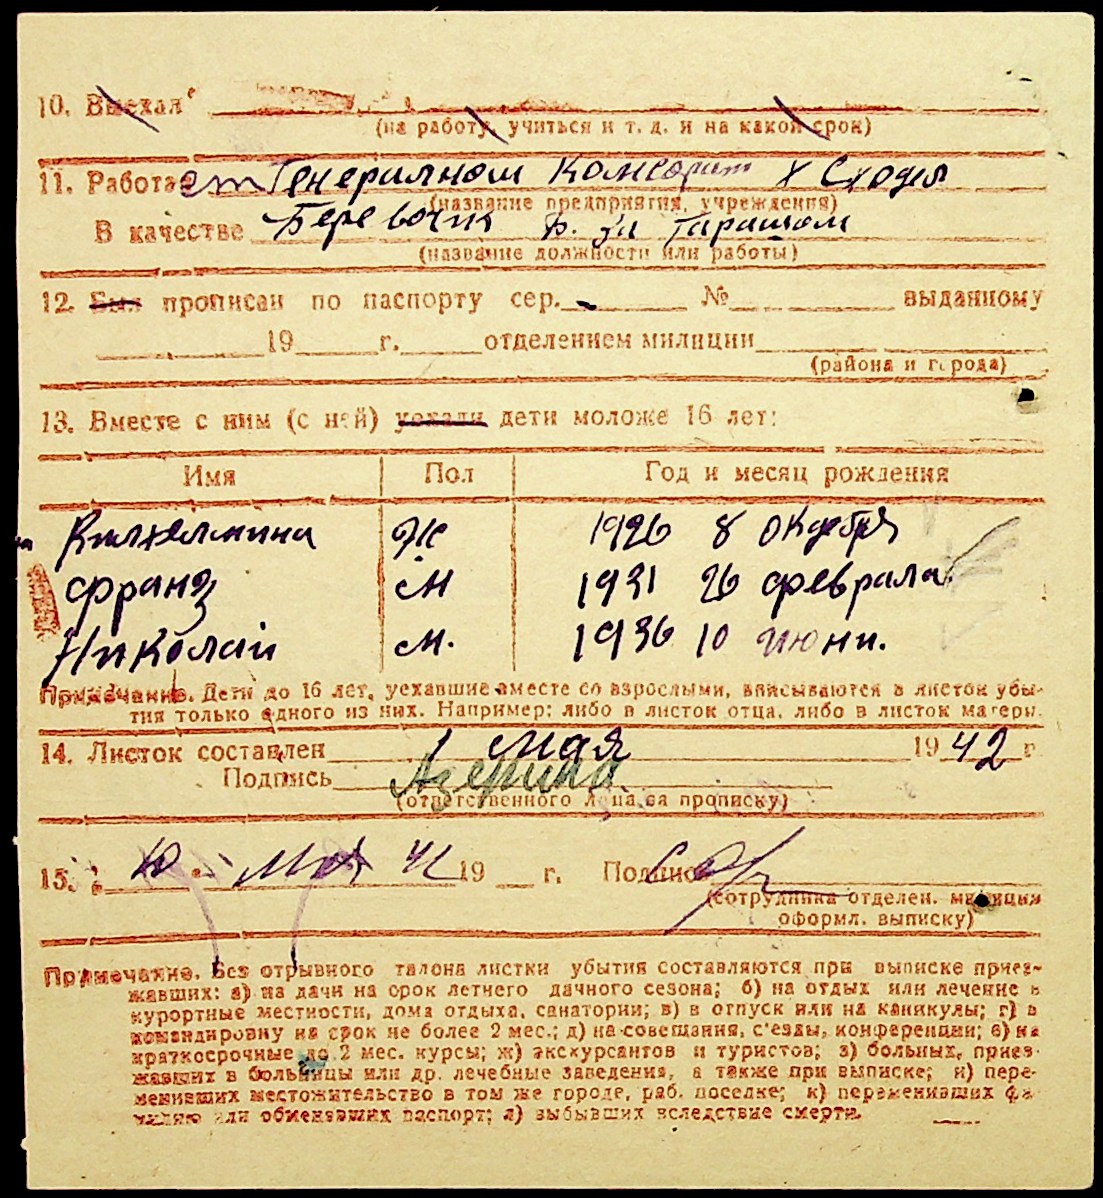 10. Выехал
(на работу, учиться и т. д. и на какой срок)
11. Работает Генералном Комсариат
(название предприятия, учреждения)
В качестве Беревочик Ф. за Гарашом
(название должности или работы)
12. Был прописан по паспорту сер. № выданному
19 г. отделением милиции
(района и города)
13. Вместе с ним (с ней) уехали дети моложе 16 лет:
Имя Пол Год и месяц рождения
Вилхелмина Ж 1926 8 октября
Франз М 1931 26 февраля
Николай М. 1936 10 июни.
Примечание. Дети до 16 лет, уехавшие вместе со взрослыми, вписываются в листок убы-
тия только одного из них. Например: либо в листок отца, либо в листок матери.
14. Листок составлен 1 мая 1942 г
Подпись
(ответственного лица за прописку)
15. 10 - Мая 42 19 г. Подпись
(сотрудника отделен. милиции
оформл. выписку)
Примечание. Без отрывного талона листки убытия составляются при выписке приез-
жавших: а) на дачи на срок летнего дачного сезона; б) на отдых или лечение в
курортные местности, дома отдыха, санатории; в) в отпуск или на каникулы; г) в
командировку на срок не более 2 мес.; д) на совещания, с'езды, конференции; е) на
краткосрочные до 2 мес. курсы; ж) экскурсантов и туристов; з) больных, приез-
жавших в больницы или др. лечебные заведения, а также при выписке; и) пере-
менивших местожительство в том же городе, раб. поселке; к) переменивших фа-
милию или обменявших паспорт; л) выбывших вследствие смерти.